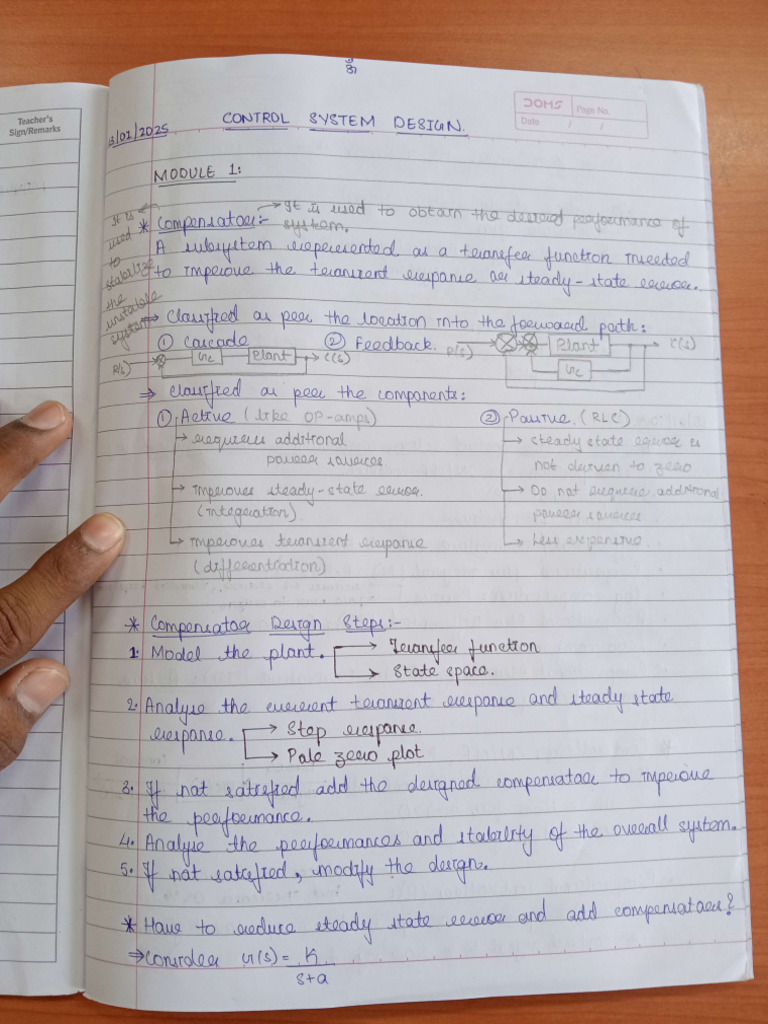 ॐ
Teacher's
Sign/Remarks
DOMS
Page No.
Date / /
3/01/2025
CONTROL SYSTEM DESIGN.
MODULE 1:
It is used to stabilize the unstable system
* Compensator:- → It is used to obtain the desired performance of
system.
A subsystem represented as a transfer function inserted
to improve the transient response or steady-state error.
⇒ Classified as per the location into the forward path:
① Cascade ② Feedback.
R(s) Gc Plant C(s)
R(s) Plant C(s)
Gc
⇒ Classified as per the components:
① Active (like OP-amps)
→ requires additional
power sources
→ improves steady-state error.
(integration)
→ improves transient response
(differentiation)
② Passive (RLC)
→ steady state error is
not driven to zero
→ Do not require additional
power sources
→ Less expensive
* Compensator Design Steps:-
1. Model the plant. → Transfer function
→ State space.
2. Analyse the current transient response and steady state
response. → Step response.
→ Pole zero plot
3. If not satisfied add the designed compensator to improve
the performance.
4. Analyse the performances and stability of the overall system.
5. If not satisfied, modify the design.
* How to reduce steady state error and add compensator?
⇒ Consider G(s) = K
s+a